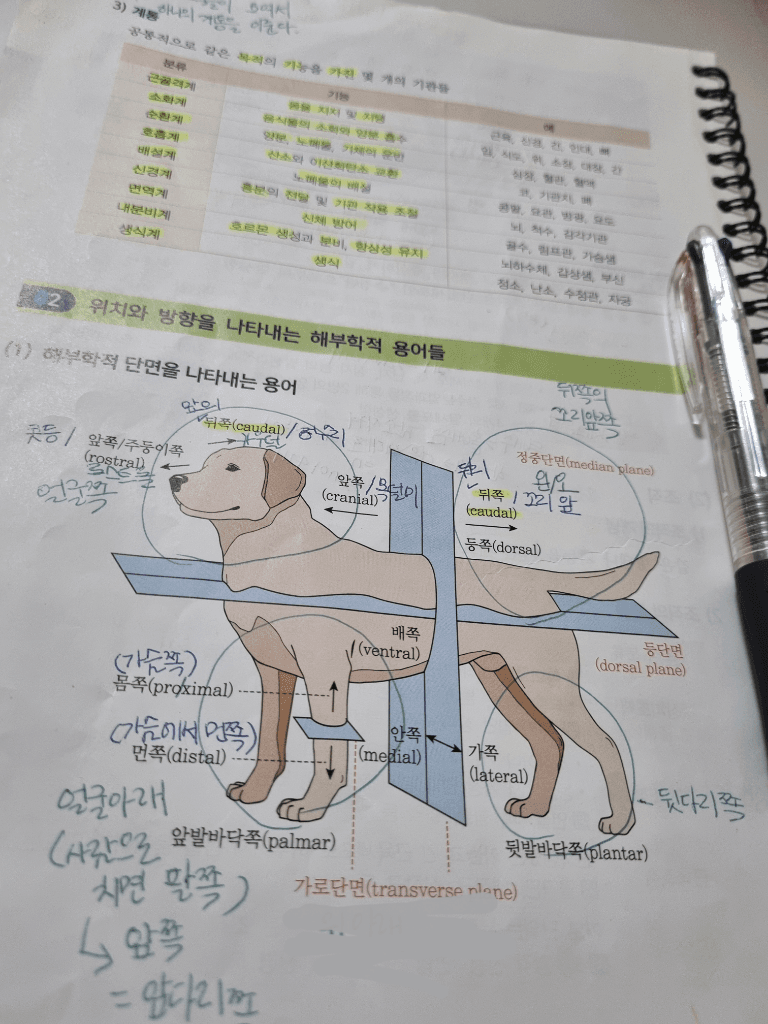 3) 계통
하나의 계통을 이룬다.
공통적으로 같은 목적의 기능을 가진 몇 개의 기관들
분류 기능 예
근골격계 몸을 지지 및 지탱 근육, 신경, 건, 인대, 뼈
소화계 음식물의 소화와 양분 흡수 입, 식도, 위, 소장, 대장, 간
순환계 양분, 노폐물, 기체의 운반 심장, 혈관, 혈액
호흡계 산소와 이산화탄소 교환 코, 기관지, 폐
배설계 노폐물의 배설 콩팥, 요관, 방광, 요도
신경계 흥분의 전달 및 기관 작용 조절 뇌, 척수, 감각기관
면역계 신체 방어 골수, 림프관, 가슴샘
내분비계 호르몬 생성과 분비, 항상성 유지 뇌하수체, 갑상샘, 부신
생식계 생식 정소, 난소, 수정관, 자궁
2 위치와 방향을 나타내는 해부학적 용어들
(1) 해부학적 단면을 나타내는 용어
뒤쪽의
꼬리앞쪽
앞의
뒤쪽(caudal)
앞쪽/주둥이쪽
(rostral)
얼굴쪽
정중단면(median plane)
앞쪽
(cranial)
/목덜미
뒤쪽 / 꼬리 앞
(caudal)
등쪽(dorsal)
배쪽
(ventral)
등단면
(dorsal plane)
(가슴쪽)
몸쪽(proximal)
(가슴에서 먼쪽)
먼쪽(distal)
안쪽
(medial)
가쪽
(lateral)
뒷다리쪽
얼굴아래
앞발바닥쪽(palmar)
뒷발바닥쪽(plantar)
(사람으로
치면 팔쪽)
가로단면(transverse plane)
↳ 앞쪽
= 앞다리쪽